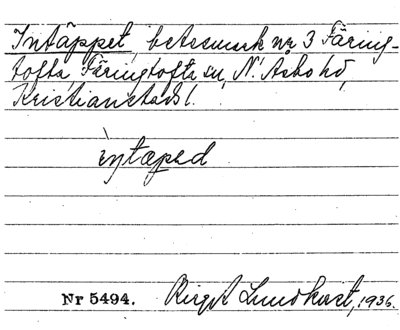 Intäppet, betesmark nr 3 Färing-
tofta, Färingtofta sn, N. Åsbo hd,
Kristianstads l.
intæped
Nr 5494. Birgit Lundkvist, 1936.